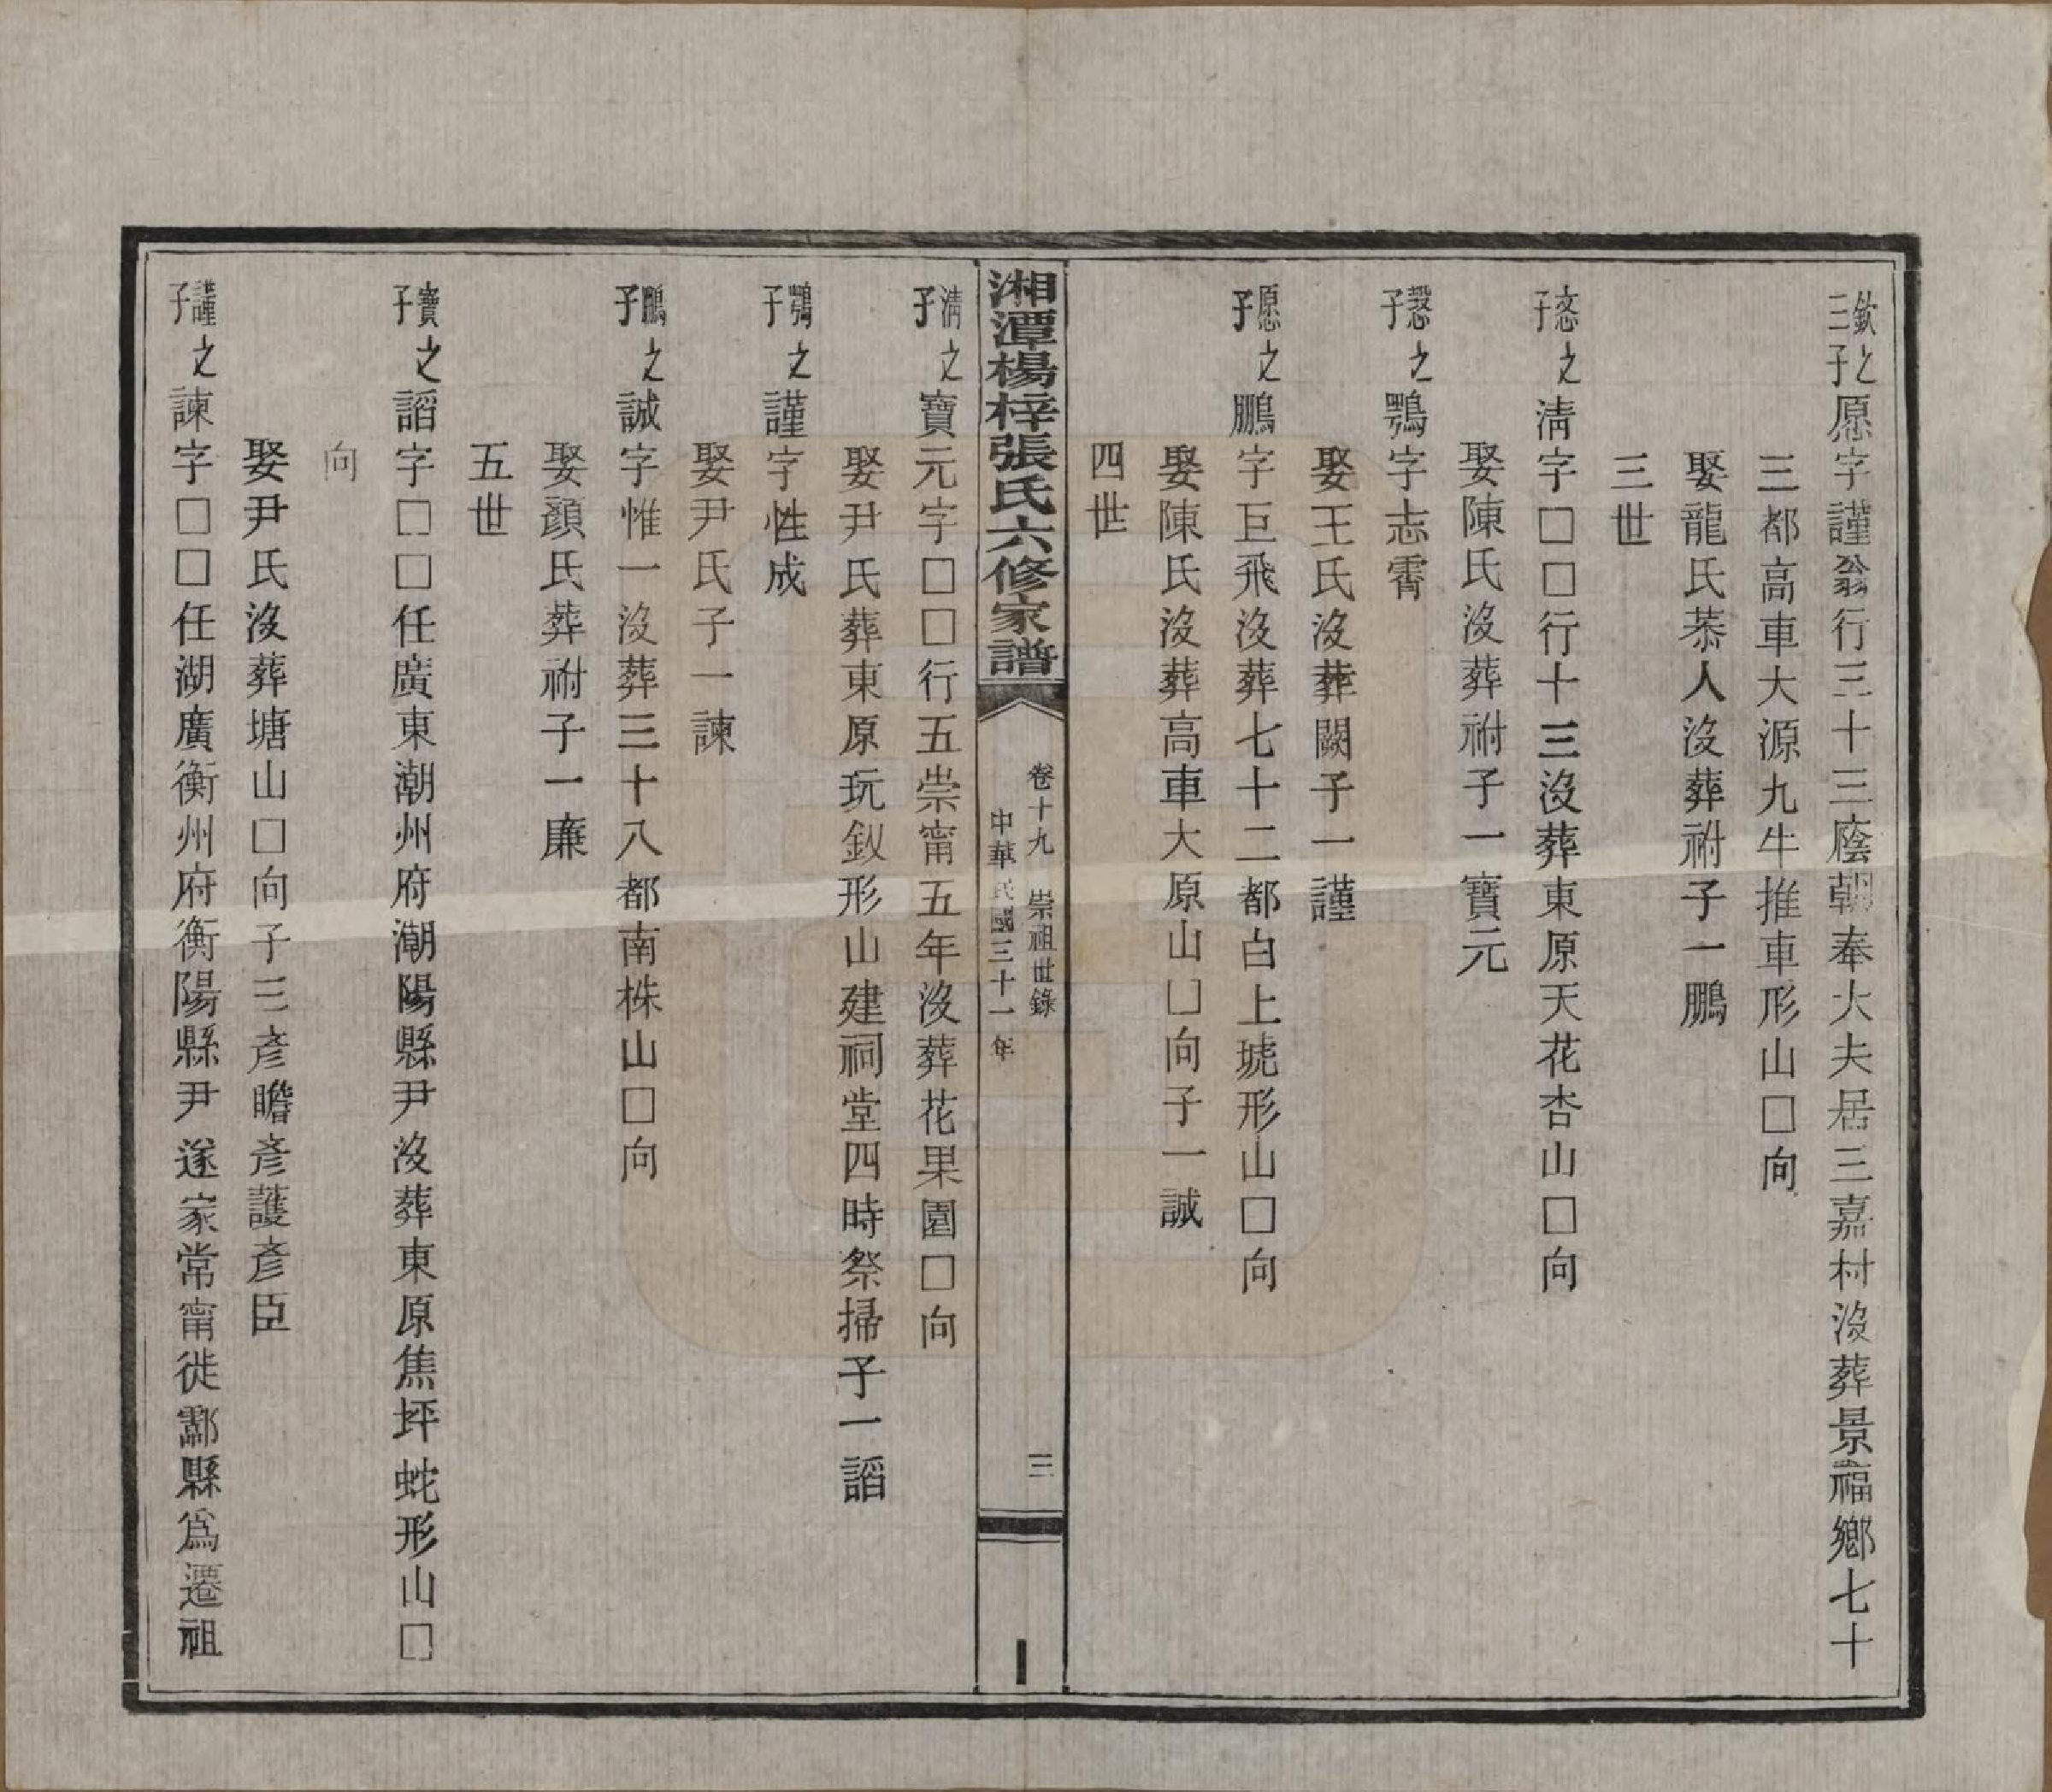 欽之三子愿字謹翁行三十三廕朝奉大夫居三嘉村沒葬景福鄉七十
三都高車大源九牛推車形山□向
娶龍氏恭人沒葬祔子一鵬
三世
忞之子淸字□□行十三沒葬東原天花杏山□向
娶陳氏沒葬祔子一寶元
慤之子鶚字志霄
娶王氏沒葬闕子一謹
愿之子鵬字巨飛沒葬七十二都白上琥形山□向
娶陳氏沒葬高車大原山□向子一誠
四世
湘潭楊梓張氏六修家譜
卷十九 崇祖世錄 三
中華民國三十一年
淸之子寶元字□□行五崇甯五年沒葬花果園□向
娶尹氏葬東原玩釵形山建祠堂四時祭掃子一謟
鶚之子謹字性成
娶尹氏子一諫
鵬之子誠字惟一沒葬三十八都南株山□向
娶顏氏葬祔子一廉
五世
寶之子謟字□□任廣東潮州府潮陽縣尹沒葬東原焦坪蛇形山□
向
娶尹氏沒葬塘山□向子三彥瞻彥護彥臣
謹之子諫字□□任湖廣衡州府衡陽縣尹遂家常甯徙酃縣爲遷祖